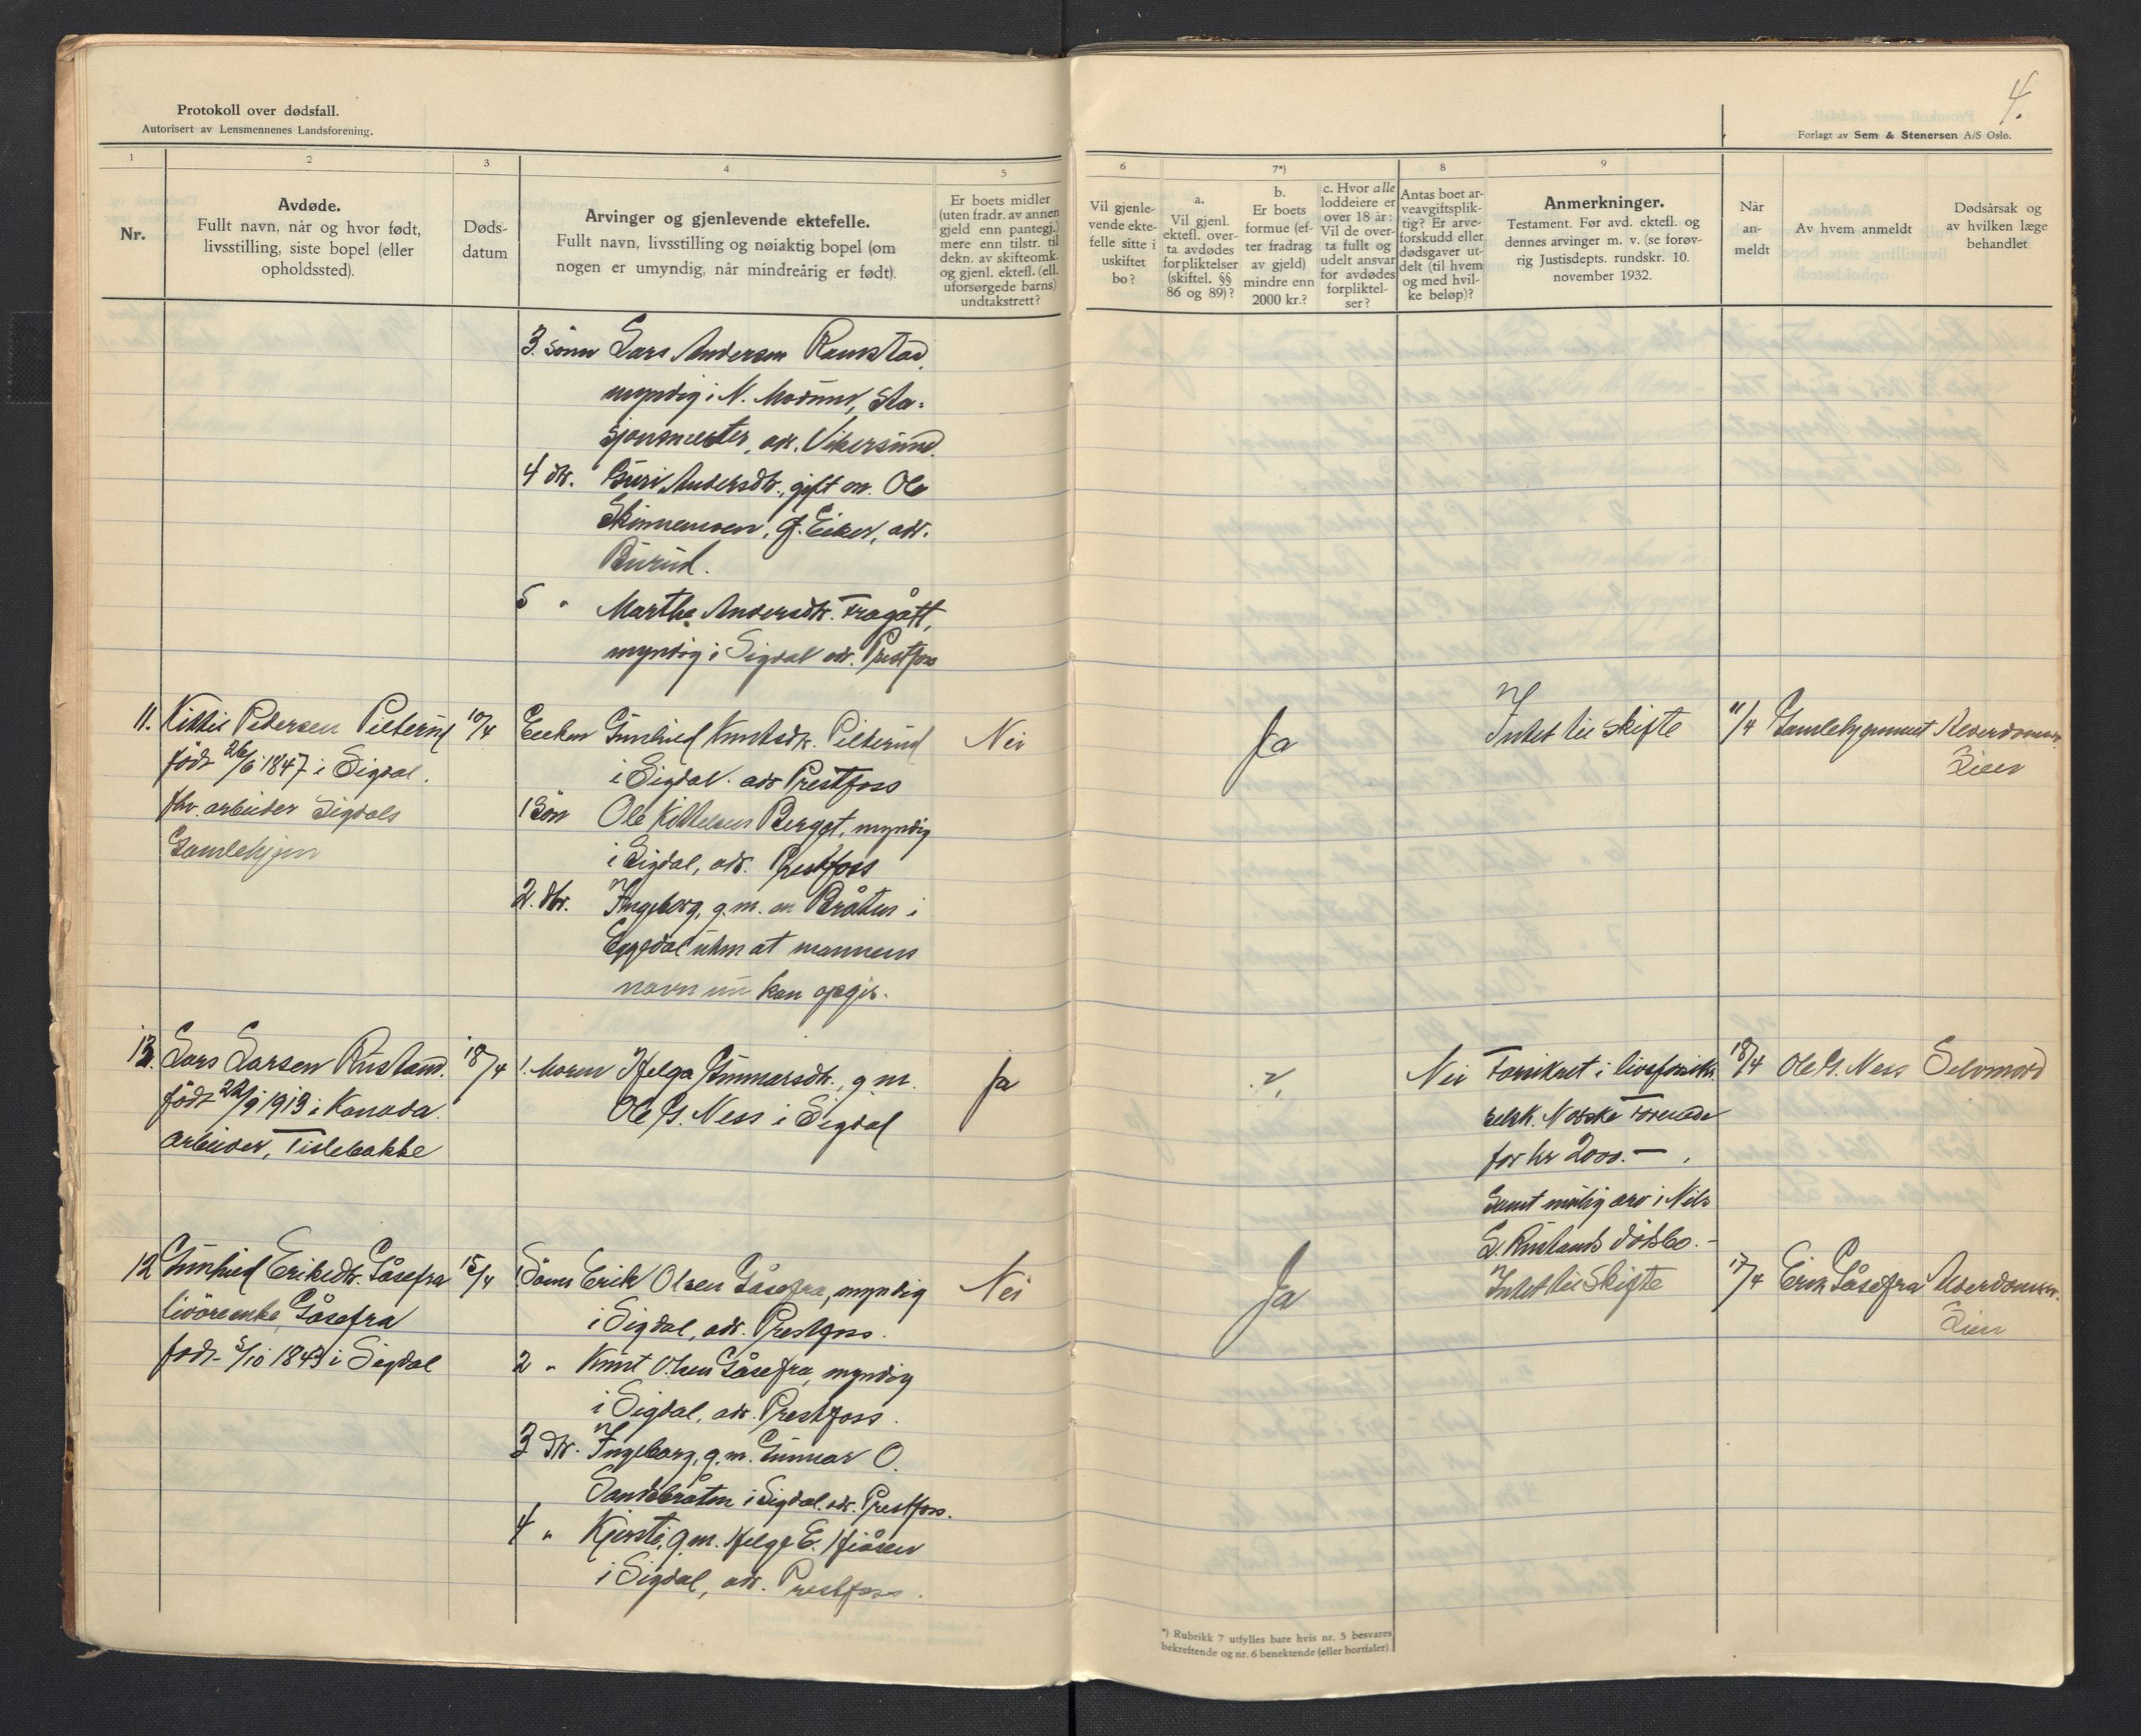 Protokoll over dødsfall.
Autorisert av Lensmennenes Landsforening.
4.
Forlagt av Sem & Stenersen A/S Oslo.
1
2
3
4
5
6
7*)
8
9
Nr.
Avdøde.
Fullt navn, når og hvor født,
livsstilling, siste bopel (eller
opholdssted).
Døds-
datum
Arvinger og gjenlevende ektefelle.
Fullt navn, livsstilling og nøiaktig bopel (om
nogen er umyndig, når mindreårig er født).
Er boets midler
(uten fradr. av annen
gjeld enn pantegj.)
mere enn tilstr. til
dekn. av skifteomk.
og gjenl. ektefl. (ell.
uforsørgede barns)
undtakstrett?
Vil gjenle-
vende ekte-
felle sitte i
uskiftet
bo?
a.
Vil gjenl.
ektefl. over-
ta avdødes
forpliktelser
(skiftel. §§
86 og 89)?
b.
Er boets
formue (ef-
ter fradrag
av gjeld)
mindre enn
2000 kr.?
c. Hvor alle
loddeiere er
over 18 år:
Vil de over-
ta fullt og
udelt ansvar
for avdødes
forpliktel-
ser?
Antas boet ar-
veavgiftsplik-
tig? Er arve-
forskudd eller
dødsgaver ut-
delt (til hvem
og med hvil-
ke beløp)?
Anmerkninger.
Testament. Før avd. ektefl. og
dennes arvinger m. v. (se forøv-
rig Justisdepts. rundskr. 10.
november 1932.
Når
an-
meldt
Av hvem anmeldt
Dødsårsak og
av hvilken læge
behandlet
3. sönn Lars Andersen Ramstad,
myndig i N. Modum, sta-
sjonsmester, adr. Vikersund.
4 dtr. Guri Andersdtr., gift m. Ole
Skinnemoen, Ø. Eiker, adr.
Burud.
5 " Marthe Andersdtr. Fragått,
myndig i Sigdal adr. Prestfoss
11. Kittil Pedersen Pilterud 10/4 Enken Gunhild Knutsdtr. Pilterud Nei Ja Intet til skifte 11/4 Gamlehjemmet Alderdommen
født 26/6 1847 i Sigdal. i Sigdal. adr Prestfoss Lien
fhv. arbeider Sigdals 1 Sön Ole Kittelsen Berget, myndig
Gamlehjem i Sigdal, adr. Prestfoss
2. dtr. Ingeborg, g.m. en Bråten i
Eggedal uten at mannens
navn nu kan opgis.
13. Lars Larsen Rustand. 18/4 1. Moren Helga Gunnarsdtr., g.m. Ja ? Nei Forsikret i livsforsikr. 18/4 Ole G. Ness Selvmord
født 22/9 1913 i Kanada. Ole G. Ness i Sigdal selsk. Norske Forenede
arbeider, Tislebakke for kr 2000.-
Samt mulig arv i Nils
L. Rustands dødsbo.-
12 Gunhild Eriksdtr. Gåsefra 15/4 1 Sönn Erik Olsen Gåsefra, myndig Nei Ja Intet til skifte 17/4 Erik Gåsefra Alderdommen.
livöreenke, Gåsefra i Sigdal, adr. Prestfoss. Lien
født 5/10 1843 i Sigdal 2 " Knut Olsen Gåsefra, myndig
i Sigdal, adr. Prestfoss.
3 dtr. Ingeborg, g.m. Gunnar O.
Sandsbråten i Sigdal. adr. Prestfoss.
4 " Kjersti, g.m. Helge E. Hiåsen
i Sigdal, adr. Prestfoss.
*) Rubrikk 7 utfylles bare hvis nr. 5 besvares
bekreftende og nr. 6 benektende (eller bortfaler)